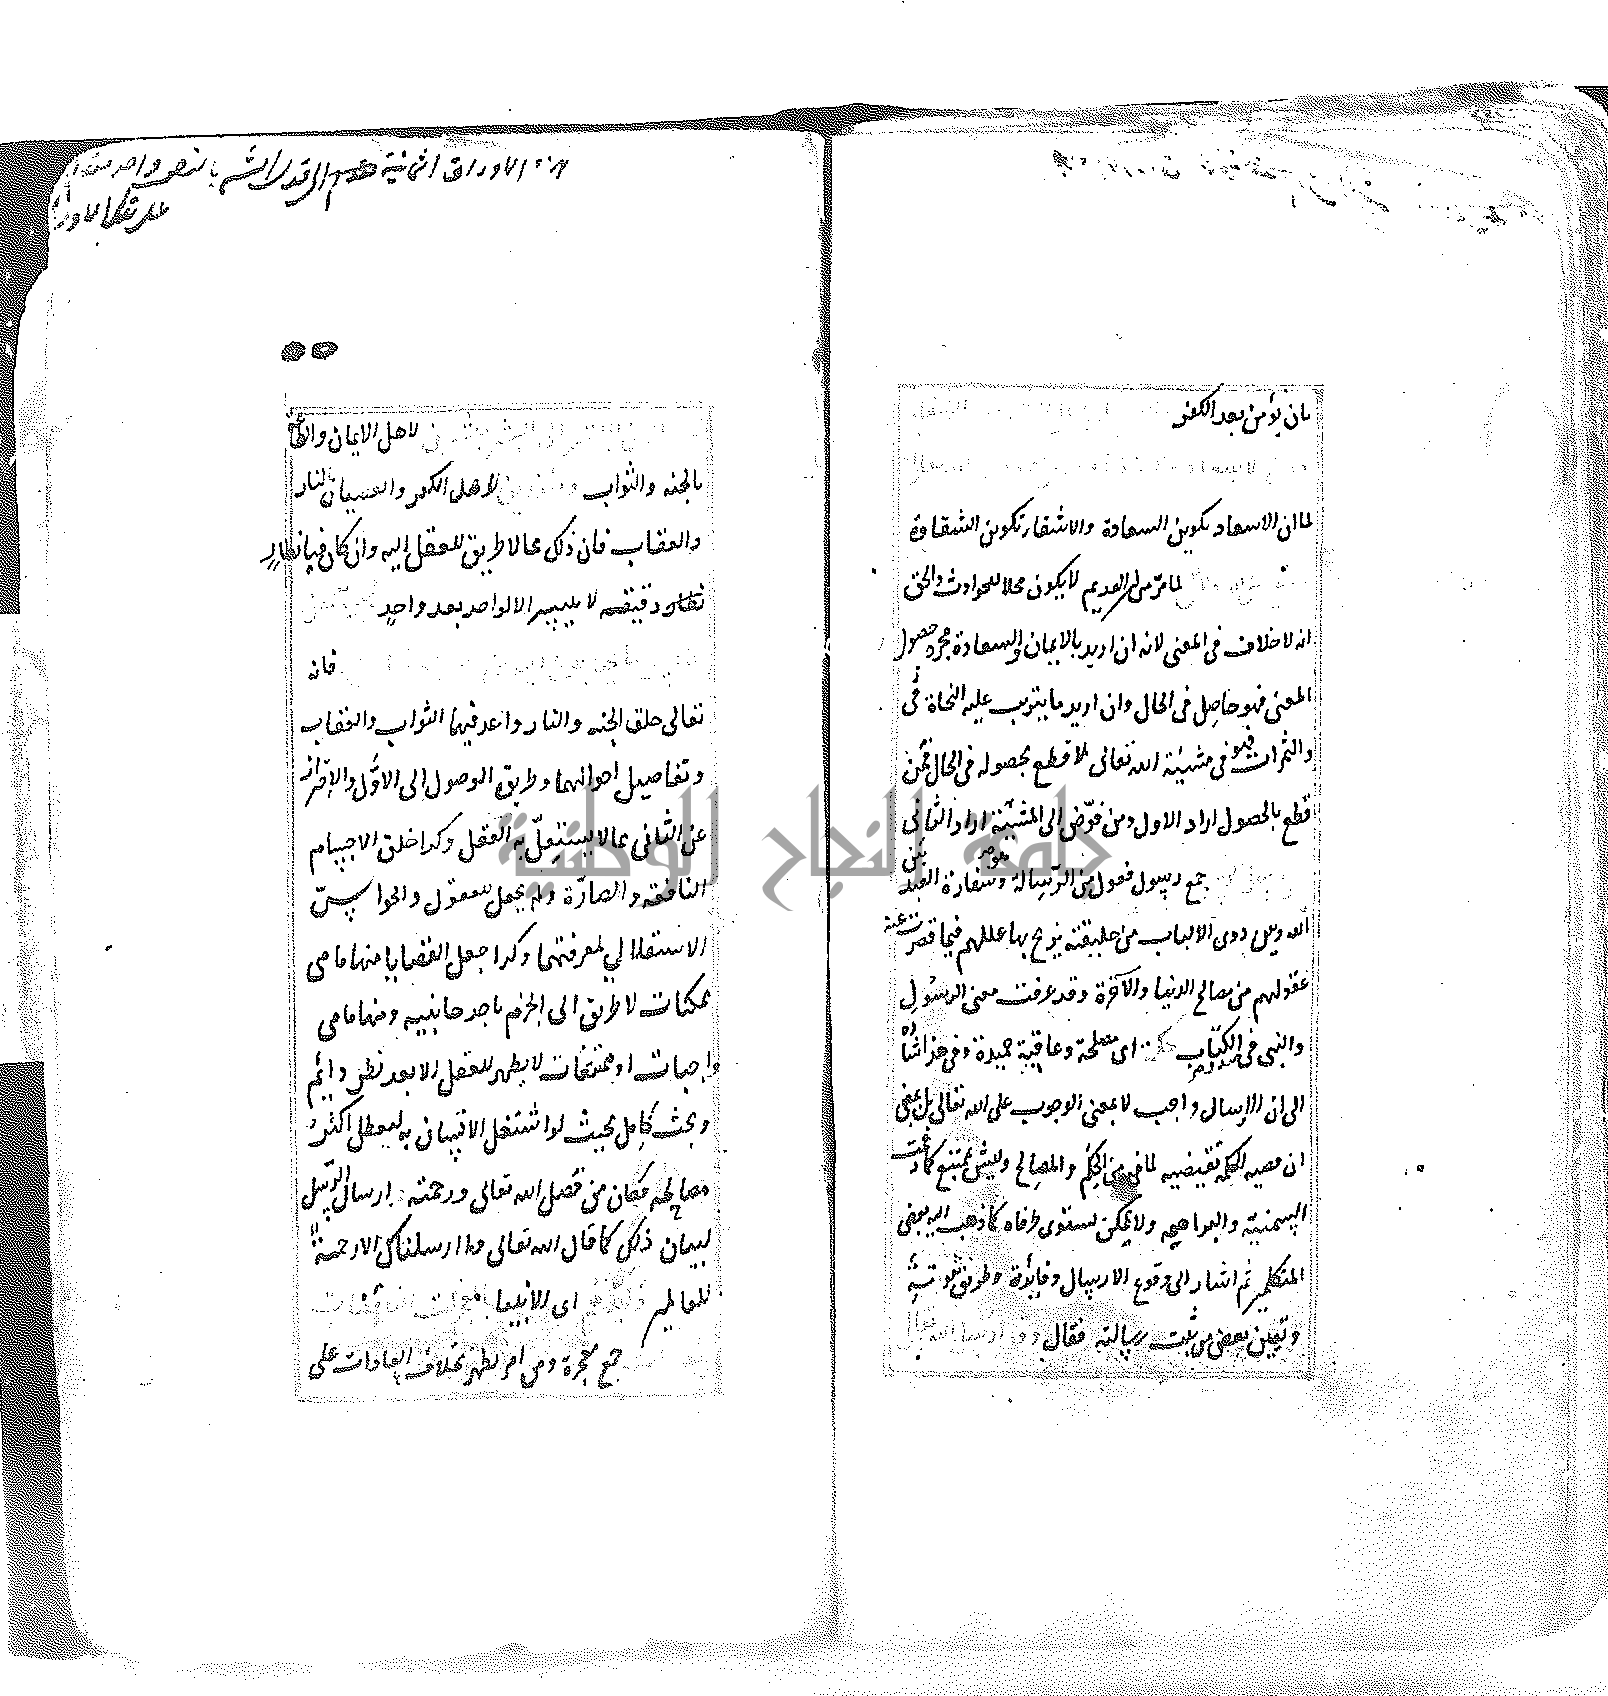 بان يؤمن بعد الكفر
لما ان الاسعاد تكوين السعادة والاشقاء تكوين الشقاوة
لما مر من ان القديم لا يكون محلا للحوادث والحق
انه لا خلاف في المعنى لانه ان اريد بالايمان والسعادة مجرد حصول
المعنى فهو حاصل في الحال وان اريد ما يترتب عليه النجاة
والثمرات فهو في مشيئة الله تعالى لا قطع بحصوله في الحال فمن
قطع بالحصول اراد الاول ومن فوّض الى المشيئة اراد الثاني
جمع رسول فعول من الرسالة وهو سفارة العبد بين
الله وبين ذوي الالباب من خليقته يزيح بها عللهم فيما قصرت عنه
عقولهم من مصالح الدنيا والآخرة وقد عرفت معنى الرسول
والنبي في صدر الكتاب حكمة اي مصلحة وعاقبة حميدة وفي هذا اشارة
الى ان الارسال واجب لا بمعنى الوجوب على الله تعالى بل بمعنى
ان قضية الحكمة تقتضيه لما فيه من الحكم والمصالح وليس بممتنع كما زعمت
السمنية والبراهمة ولا بممكن يستوى طرفاه كما ذهب اليه بعض
المتكلمين ثم اشار الى وقوع الارسال وفائدته وطريق ثبوته
وتعيين بعض من ثبت رسالته فقال
هذه الاوراق الثمانية
لاهل الايمان والطاعة
بالجنة والثواب لاهل الكفر والعصيان بالنار
والعقاب فان ذلك مما لا طريق للعقل اليه وان كان فبانظار
دقيقة لا يتيسر الا لواحد بعد واحد
فانه
تعالى خلق الجنة والنار واعد فيهما الثواب والعقاب
وتفاصيل احوالهما وطريق الوصول الى الاول والاحتراز
عن الثاني مما لا يستقل به العقل وكذا خلق الاجسام
النافعة والضارّة ولم يجعل للعقول والحواسّ
الاستقلال لمعرفتهما وكذا جعل القضايا منها ما هي
ممكنات لا طريق الى الجزم باحد جانبيه ومنها ما هي
واجبات او ممتنعات لا يظهر للعقل الا بعد نظر دائم
وبحث كامل بحيث لو اشتغل الانسان به لتعطل اكثر
مصالحه فكان من فضل الله تعالى ورحمته ارسال الرسل
لبيان ذلك كما قال الله تعالى وما ارسلناك الا رحمة
للعالمين وايدهم اي الانبيا بالمعجزات الناقضات
جمع معجزة وهي امر يظهر بخلاف العادات على